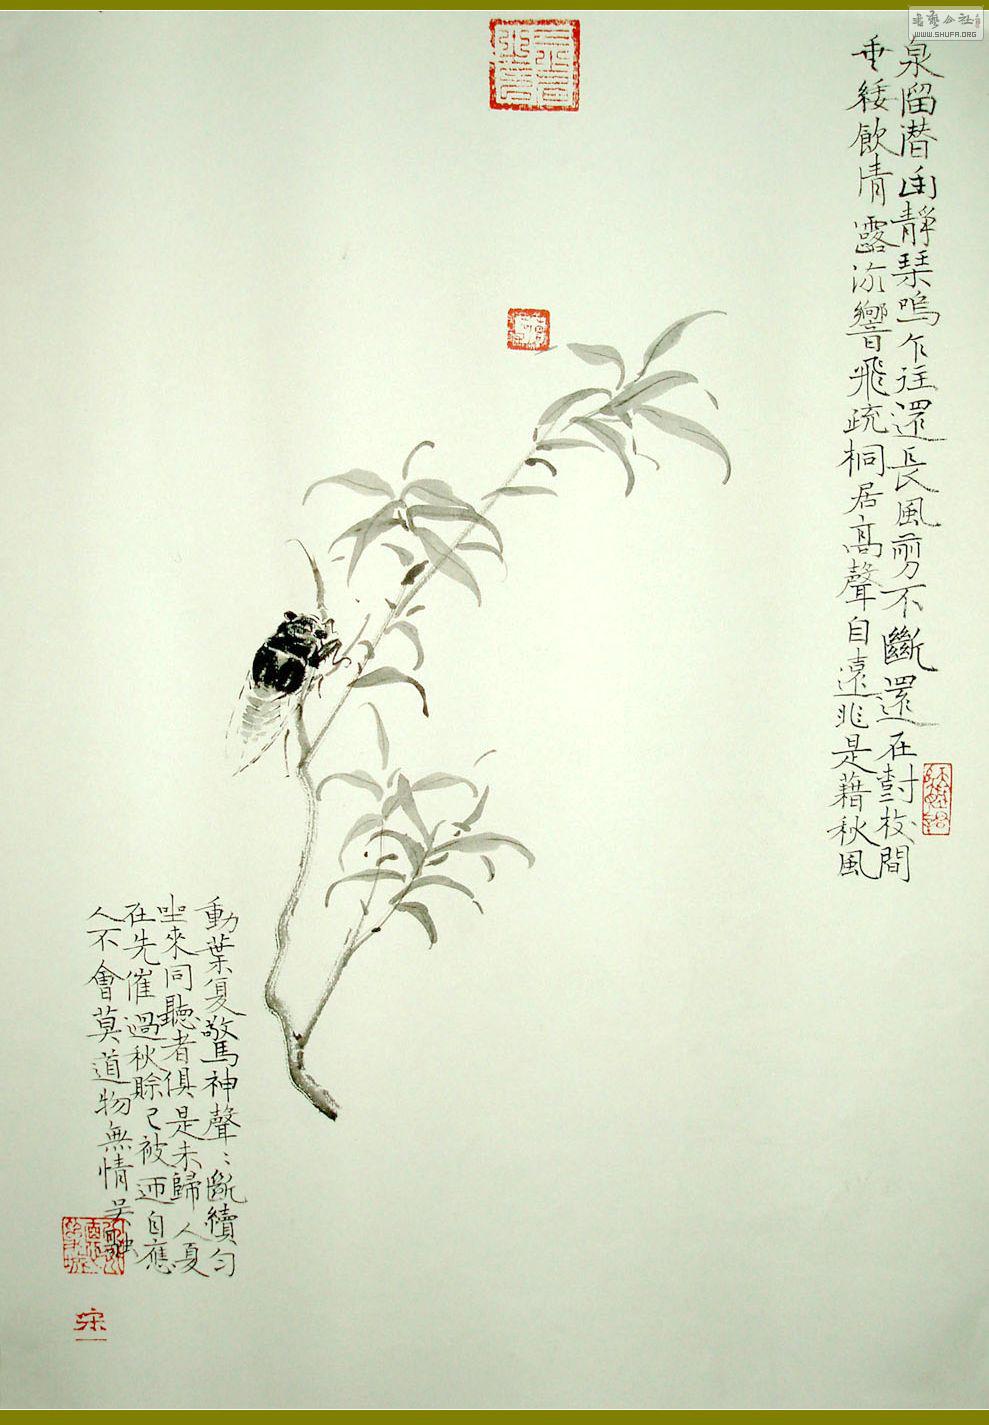 書藝公社
WWW.SHUFA.ORG
泉溜潛幽靜琹嗚乍往還長風剪不斷還在封枝間
垂緌飲清露流響飛疏桐居高聲自遠非是藉秋風
動葉复驚神聲〻斷續勻
坐來同聽者俱是未歸人夏
在先催過秋賒已被迊自應
人不會莫道物無情吴融